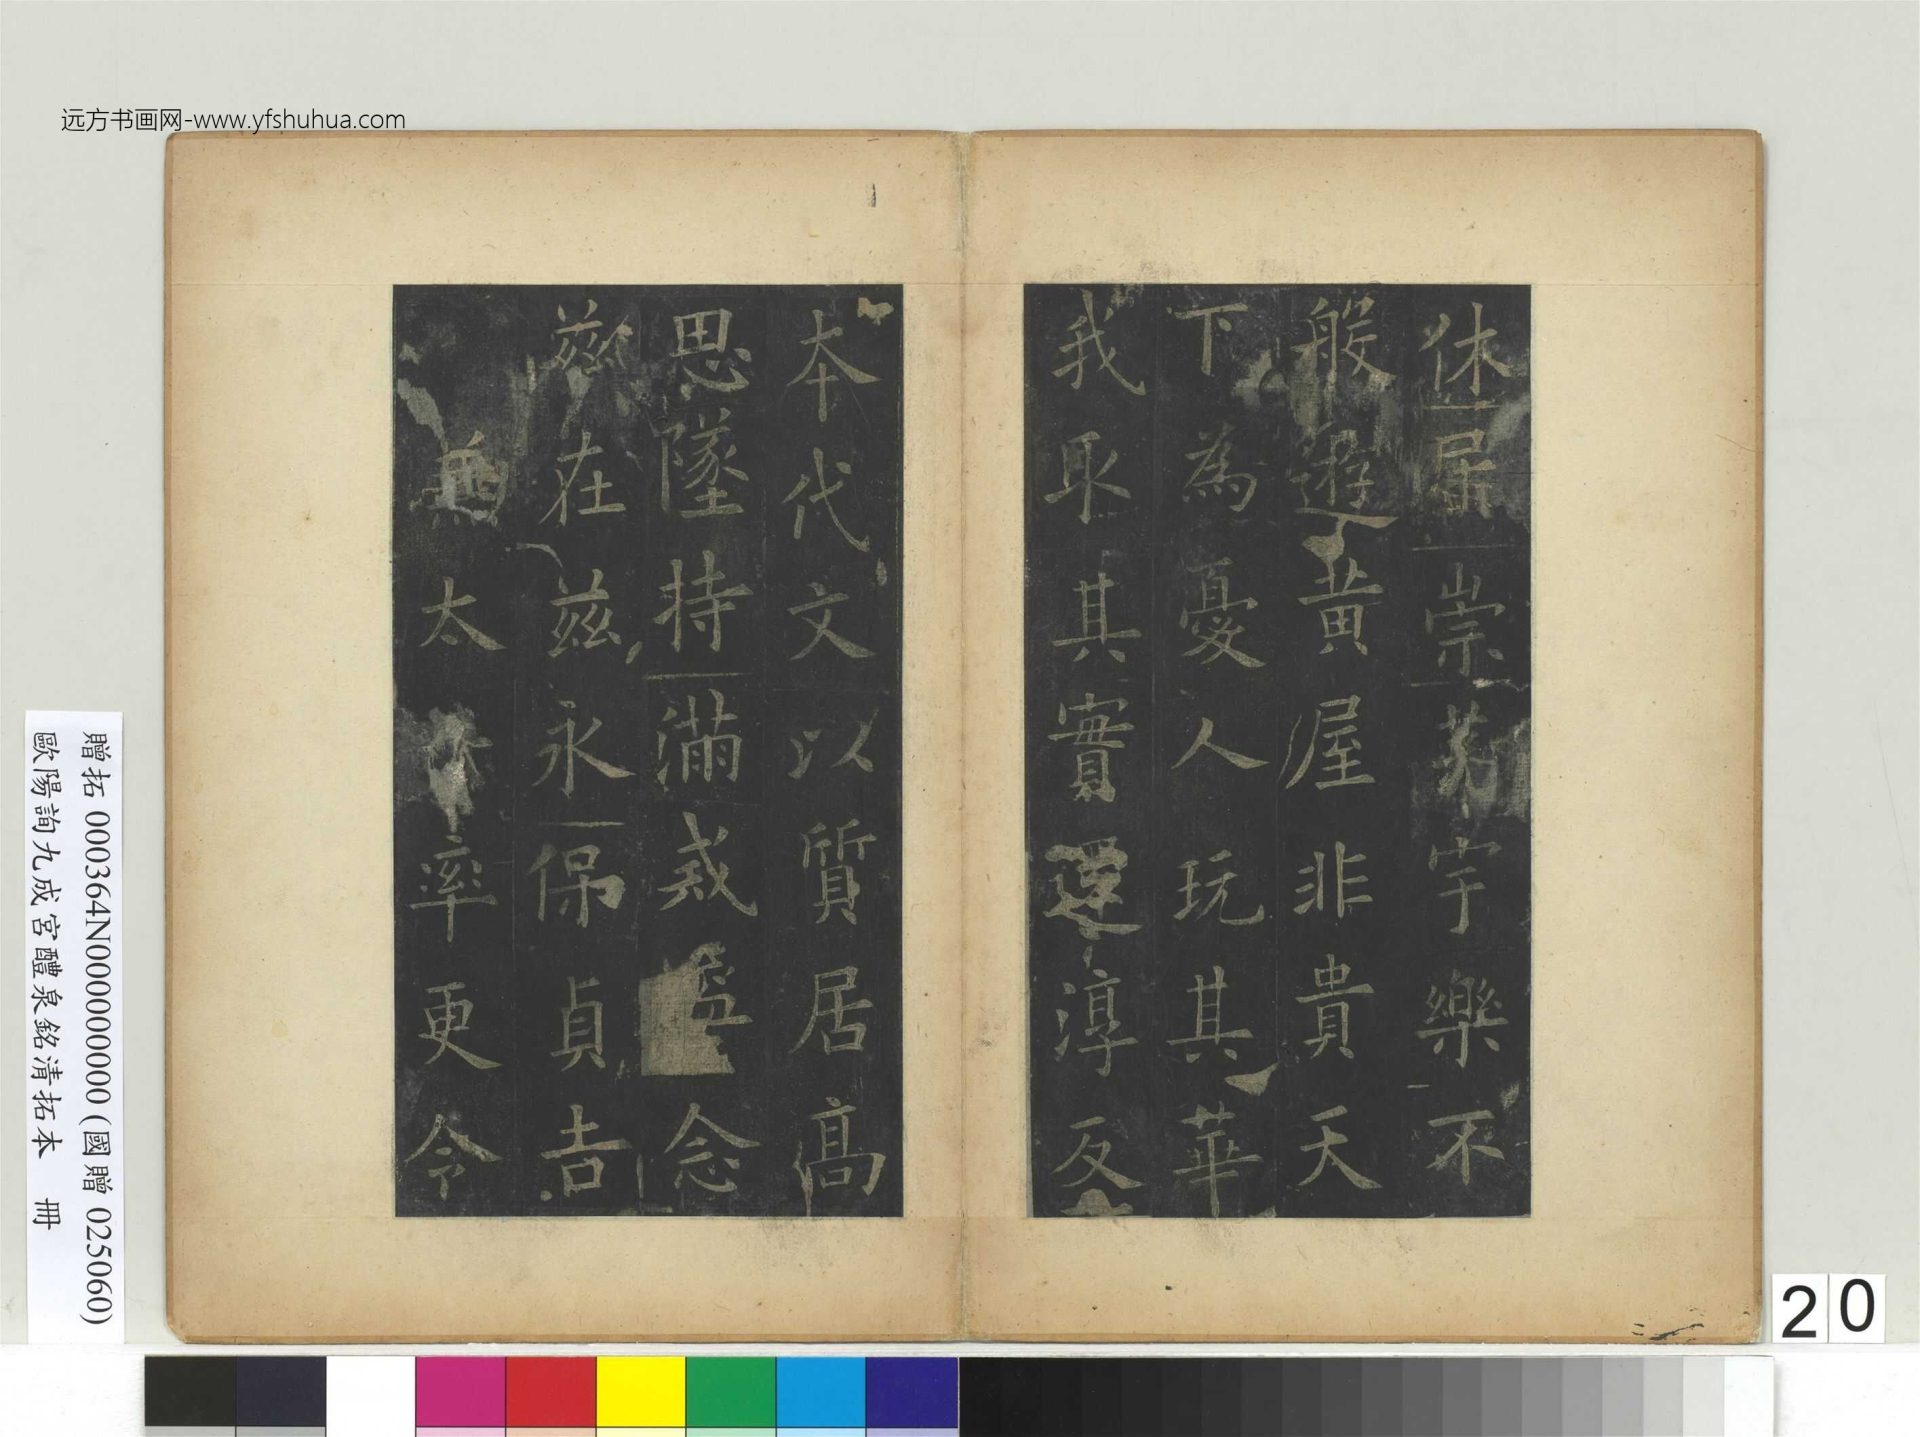 远方书画网-www.yfshuhua.com
休居崇茅宇樂不
般遊黃屋非貴天
下為憂人玩其華
我取其實還淳反
本代文以質居高
思墜持滿戒溢念
茲在茲永保貞吉
兼太率更令
贈拓 000364N000000000 (國贈 025060)
歐陽詢九成宮醴泉銘清拓本 冊
20